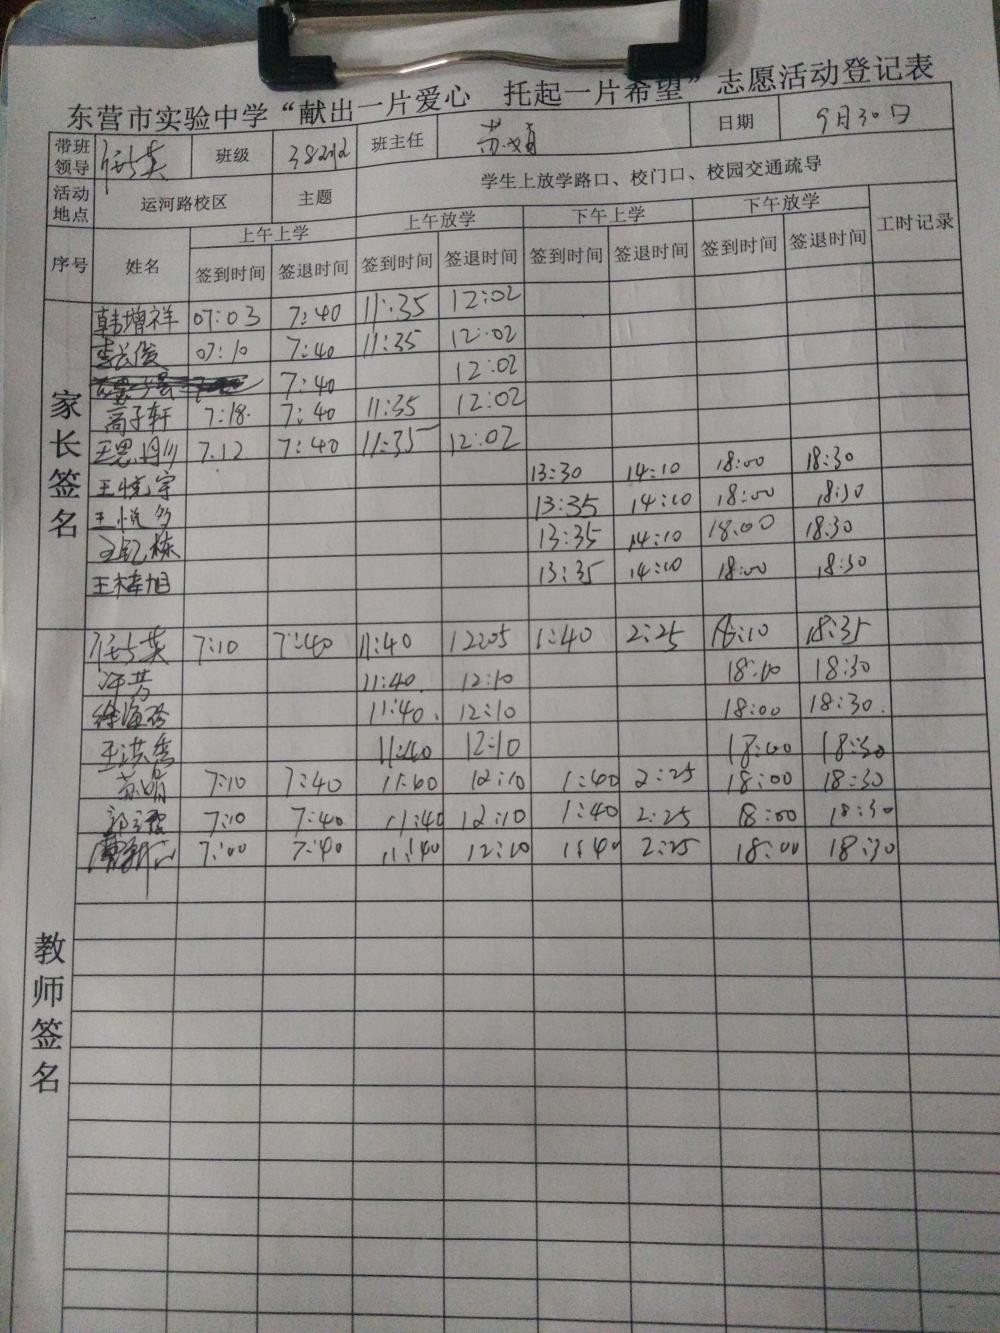 东营市实验中学“献出一片爱心 托起一片希望”志愿活动登记表
带班领导 班级 班主任 苏娟 日期 9月30日
活动地点 运河路校区 主题 学生上放学路口、校门口、校园交通疏导
序号 姓名 上午上学 上午放学 下午上学 下午放学 工时记录
签到时间 签退时间 签到时间 签退时间 签到时间 签退时间 签到时间 签退时间
家长签名
韩增祥 07:03 7:40 11:35 12:02
李长俊 07:10 7:40 11:35 12:02
7:40 12:02
高子轩 7:18 7:40 11:35 12:02
王思 7:12 7:40 11:35 12:02
王悦宇 13:30 14:10 18:00 18:30
王悦 13:35 14:10 18:00 18:30
栋 13:35 14:10 18:00 18:30
王梓旭 13:35 14:10 18:00 18:30
教师签名
英 7:10 7:40 11:40 12:05 1:40 2:25 18:10 18:35
许芳 11:40 12:10 18:10 18:30
徐海 11:40 12:10 18:00 18:30
王洪秀 11:40 12:10 18:00 18:30
苏娟 7:10 7:40 11:40 12:10 1:40 2:25 18:00 18:30
郭 7:10 7:40 11:40 12:10 1:40 2:25 18:00 18:30
7:00 7:40 11:40 12:10 1:40 2:25 18:00 18:30